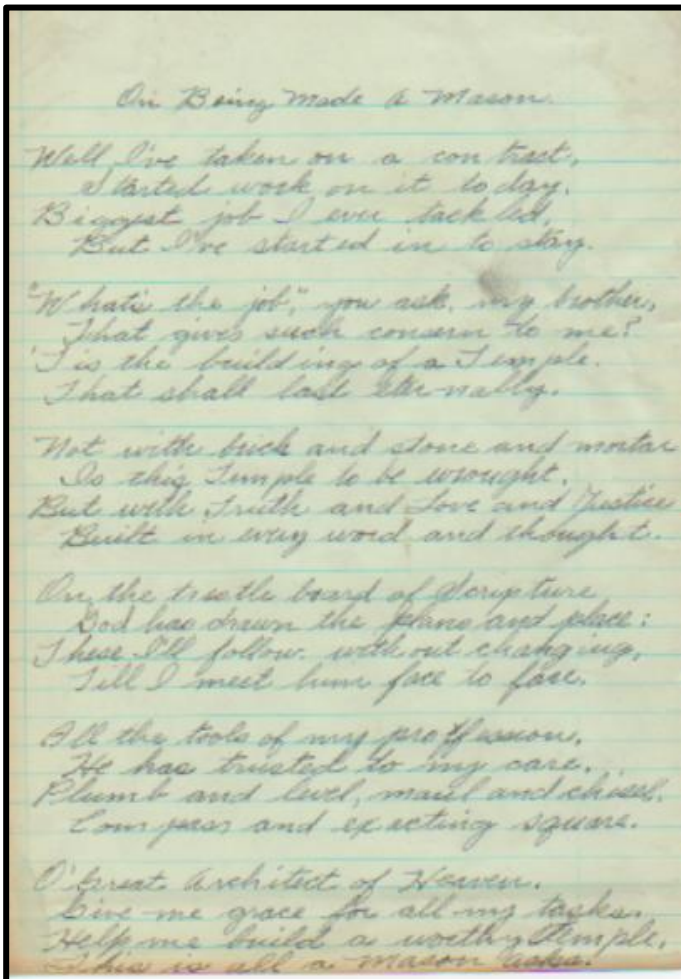 On Being Made A Mason.
Well, I've taken on a contract,
Started work on it today.
Biggest job I ever tackled,
But I've started in to stay.
"What's the job," you ask, my brother,
That gives such concern to me?
'Tis the building of a Temple.
That shall last eternally.
Not with brick and stone and mortar
Is this Temple to be wrought.
But with Truth and Love and Justice
Built in every word and thought.
On the trestle board of Scripture
God has drawn the plans and place;
These I'll follow without changing,
Till I meet him face to face.
All the tools of my proffession,
He has trusted to my care.
Plumb and level, maul and chisel.
Compass and exacting square.
O'Great Architect of Heaven.
Give me grace for all my tasks.
Help me build a worthy Temple,
This is all a Mason asks.